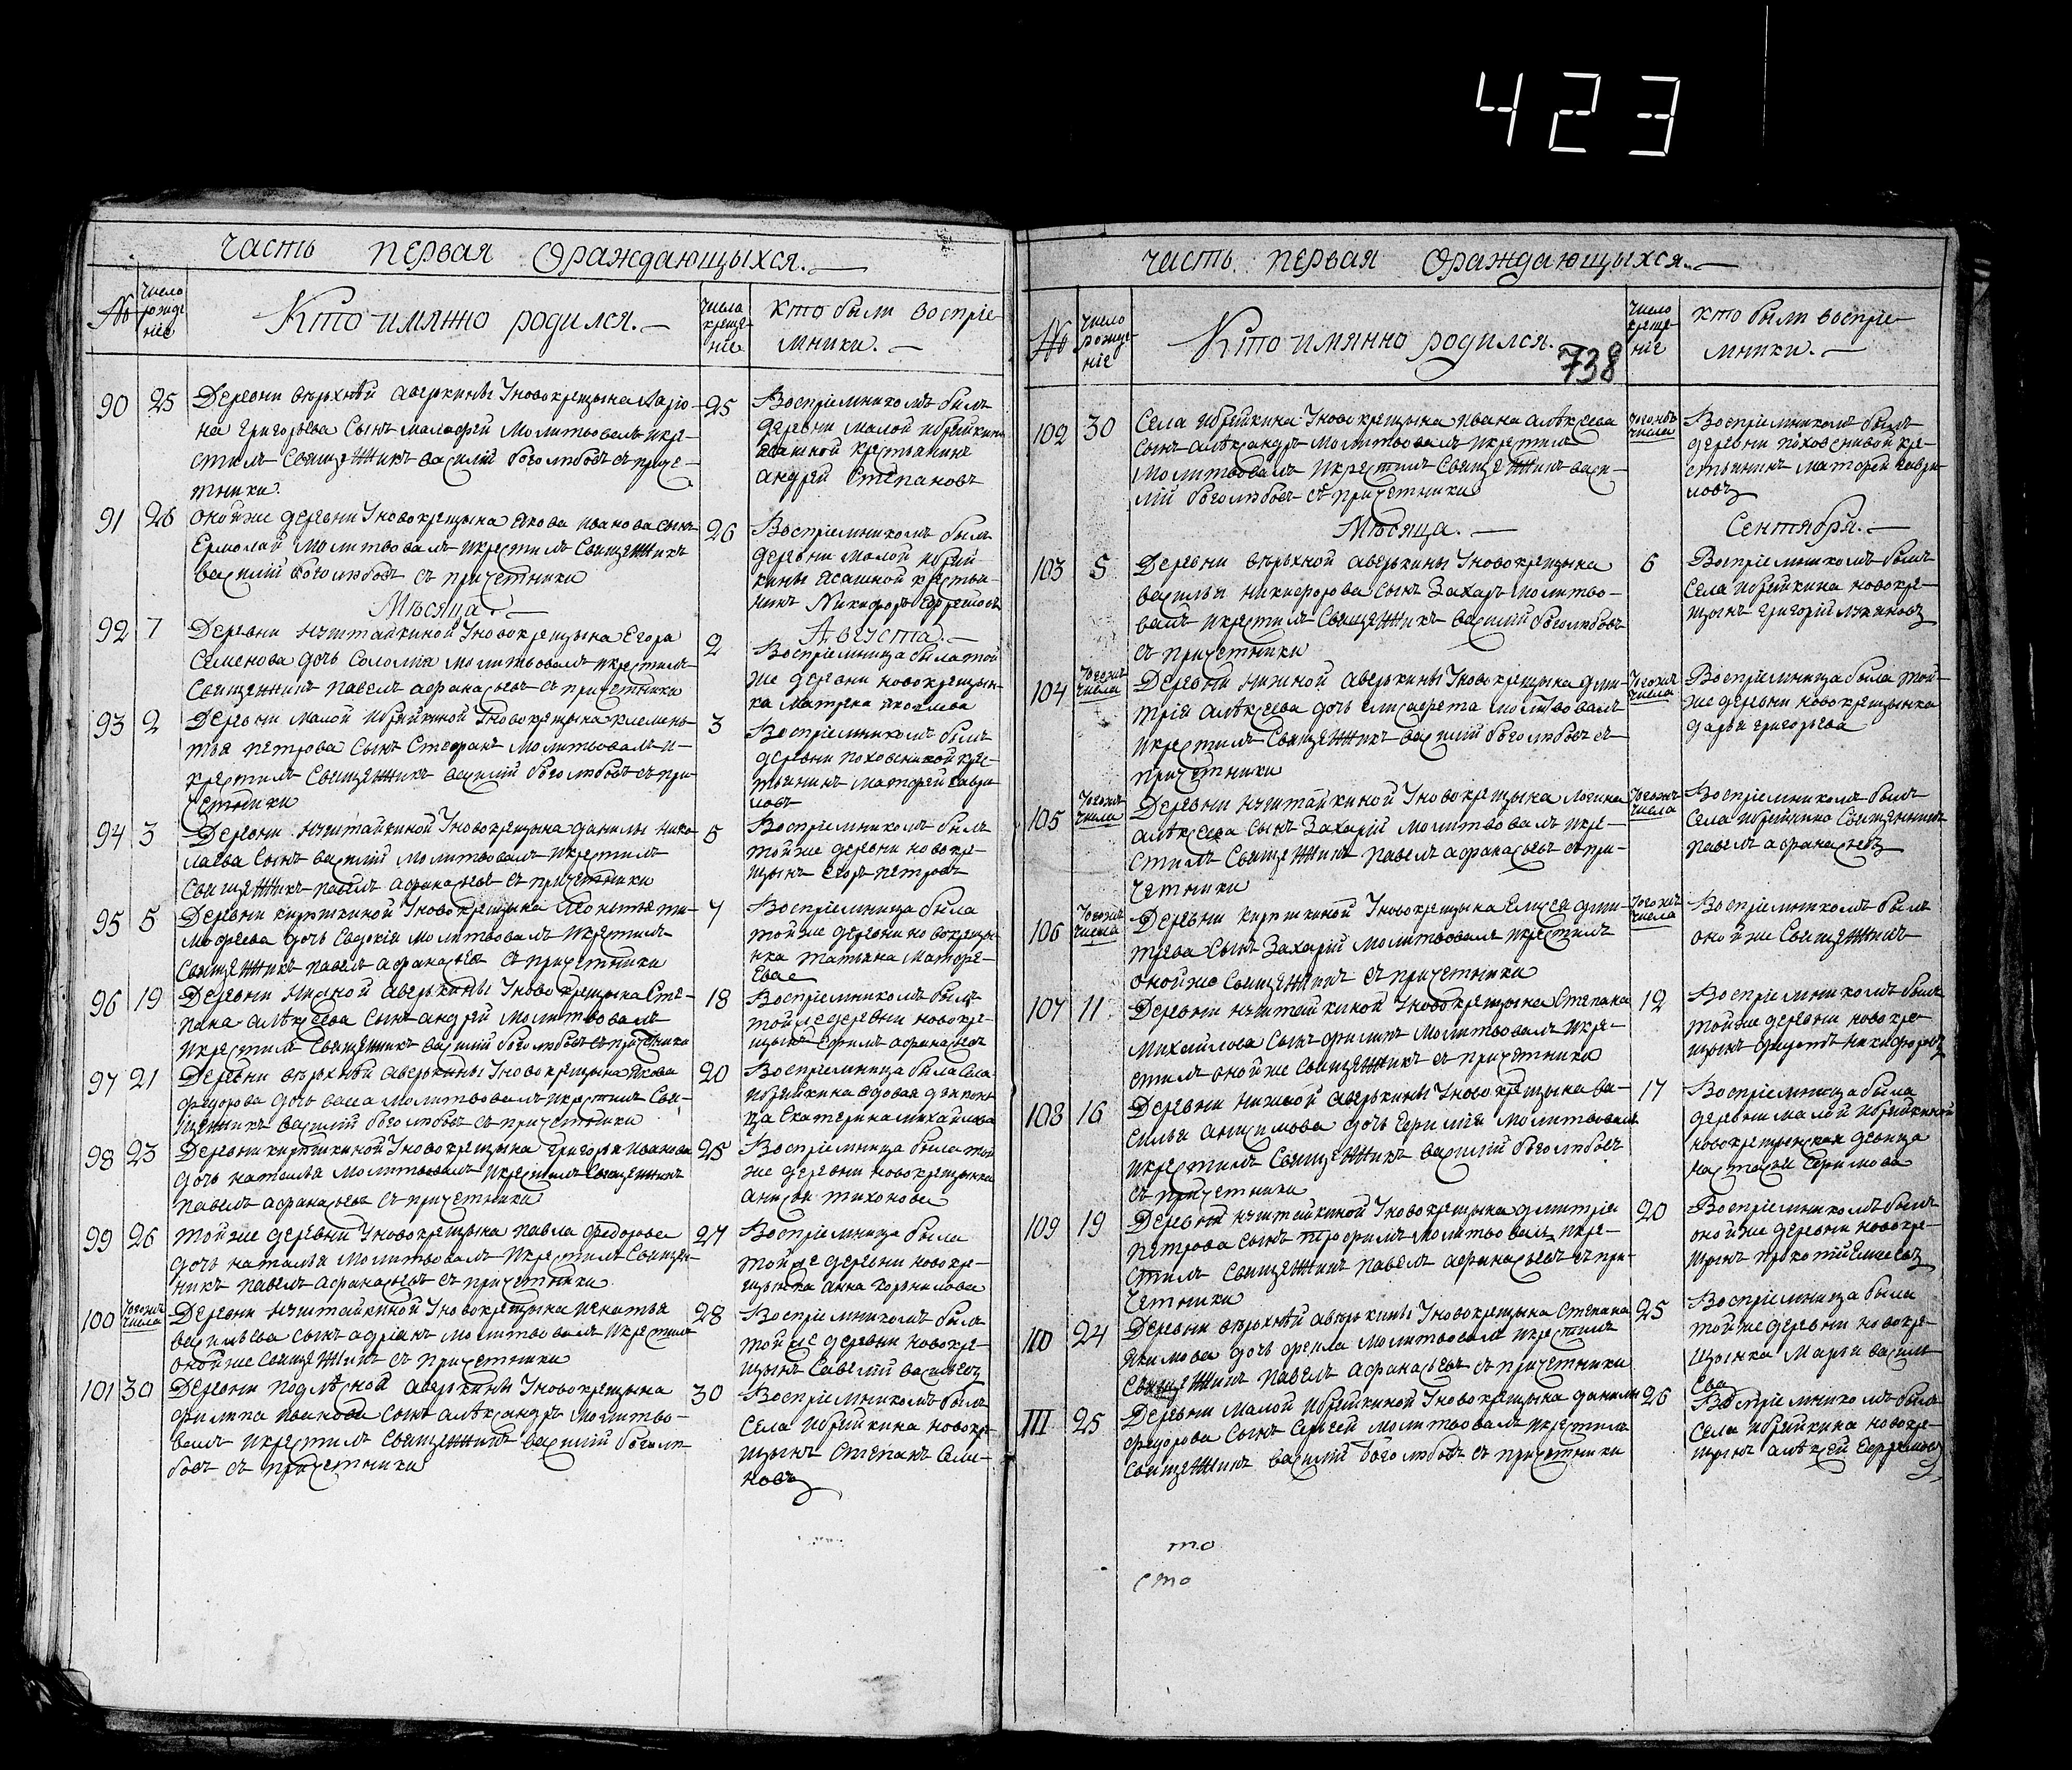 423
часть первая Ораждающыхся.
№
число рожде ніе
Кто имянно родился.
числа креще ніе
кто были воспріе-
мники.
90 25 Деревни верхнѣй аверкины Уновокрещына Ларіо- 25
на григорьева Сынъ малафей молитвовалъ икре-
стилъ Священникъ василій боголюбовъ съ приче-
тники
Воспріемникомъ былъ
деревни малой ибряйкины
Ясашной крестьянинъ
андрей Степановъ
91 26 оной же деревни Уновокрещына якова иванова сынъ 26
Ермолай молитвовалъ икрестилъ Священникъ
василій боголюбовъ съ причетники
Воспріемникомъ былъ
деревни малой ибряй-
кины ясашной крестья-
нинъ Никифоръ Ефремовъ
Мѣсяца. Августа.
92 7 Деревни ншитайкиной Уновокрещына Егора 2
Семенова дочь Соломія молитвовалъ икрестилъ
Священникъ павелъ афанасьевъ съ причетники
Воспріемница была той
же деревни новокрещын-
ка матрена яковлева
93 2 Деревни малой ибряйкиной Уновокрещына клемень- 3
тья петрова Сынъ Стефанъ молитвовалъ и-
крестилъ Священникъ василій боголюбовъ съ при-
четники
Воспріемникомъ былъ
деревни похвисневой кре-
стьянинъ матфей гаври-
ловъ
94 3 Деревни ншитайкиной Уновокрещына данилы нико- 5
лаева Сынъ василій молитвовалъ икрестилъ
Священникъ павелъ афанасьевъ съ причетники
Воспріемникомъ былъ
той же деревни новокре-
щынъ егоръ петровъ
95 5 Деревни кирюшкиной Уновокрещына Леонтья ти- 7
мофеева дочь Евдокія молитвовалъ икрестилъ
Священникъ павелъ афанасьевъ съ причетники
Воспріемница была
той же деревни новокрещы-
нка татьяна матфе-
ева
96 19 Деревни нижной аверкины Уновокрещына Сте- 18
пана алѣксеева Сынъ андрей молитвовалъ
икрестилъ Священникъ василій боголюбовъ съ причетники
Воспріемникомъ былъ
той же деревни новокре-
щынъ Ефимъ афанасьевъ
97 21 Деревни верхнѣй аверкины Уновокрещына якова 20
федорова дочь васса молитвовалъ икрестилъ Свя-
щенникъ василій боголюбовъ съ причетники
Воспріемница была Села
ибряйкина вдовая дьякони-
ца Екатерина михайлова
98 23 Деревни кирюшкиной Уновокрещына григорья иванова 25
дочь наталья молитвовалъ икрестилъ Священникъ
павелъ афанасьевъ съ причетники
Воспріемница была той
же деревни новокрещынка
анисья тихонова
99 26 той же деревни Уновокрещына павла федорова 27
дочь наталья молитвовалъ икрестилъ Священ-
никъ павелъ афанасьевъ съ причетники
Воспріемница была
той же деревни новокре-
щынка анна корнилова
100 тогожъ числа Деревни ншитайкиной Уновокрещына игнатья 28
васильева сынъ адріанъ молитвовалъ икрестилъ
оной же Священникъ съ причетники
Воспріемникомъ былъ
той же деревни новокре-
щынъ Савелій васильевъ
101 30 Деревни подлѣсной аверкины Уновокрещына 30
филипа иванова сынъ алѣксандръ молитво-
валъ икрестилъ Священникъ василій боголю-
бовъ съ причетники
Воспріемникомъ былъ
Села ибряйкина новокре-
щынъ Степанъ Семи-
новъ
часть первая Ораждающыхся.
№
число рожде ніе
Кто имянно родился.
738
число креще ніе
кто были воспріе-
мники.
102 30 Села ибряйкина Уновокрещына ивана алѣксеева тогожъ числа
сынъ алѣксандръ молитвовалъ икрестилъ
молитвовалъ икрестилъ Священникъ васи-
лій боголюбовъ съ причетники
Воспріемникомъ былъ
деревни похвисневой кре-
стьянинъ матфей гаври-
ловъ
Мѣсяца. Сентября.
103 5 Деревни верхной аверкины Уновокрещына 6
василья никифорова сынъ Захаръ молитво-
валъ икрестилъ Священникъ василій боголюбовъ
съ причетники
Воспріемникомъ былъ
Села ибряйкина новокре-
щынъ григорій лукяновъ
104 тогожъ числа Деревни нижной аверкины Уновокрещына дми- тогожъ числа
трія алѣксеева дочь елисавета молитвовалъ
икрестилъ Священникъ василій боголюбовъ съ
причетники
Воспріемница была той
же деревни новокрещынка
дарья григорьева
105 тогожъ числа Деревни ншитайкиной Уновокрещына логина тогожъ числа
алѣксеева сынъ Захарій молитвовалъ икре-
стилъ Священникъ павелъ афанасьевъ съ при-
четники
Воспріемникомъ былъ
Села ибряйкино Священникъ
павелъ афанасьевъ
106 тогожъ числа Деревни кирюшкиной Уновокрещына Елисея дми- тогожъ числа
трева сынъ Захарій молитвовалъ икрестилъ
оной же Священникъ съ причетники
Воспріемникомъ былъ
оной же Священникъ
107 11 Деревни ншитайкиной Уновокрещына Степана 12
михайлова сынъ филипъ молитвовалъ икре-
стилъ оной же Священникъ съ причетники
Воспріемникомъ былъ
той же деревни новокре-
щынъ федотъ никифоровъ
108 16 Деревни нижной аверкины Уновокрещына ва- 17
силья анцимова дочь Ефимія молитвовалъ
икрестилъ Священникъ василій боголюбовъ
съ причетники
Воспріемница была
деревни малой ибряйкиной
новокрещынская девица
настасья Ефимова
109 19 Деревни ншитайкиной Уновокрещына дмитрія 20
петрова сынъ трофимъ молитвовалъ икре-
стилъ Священникъ павелъ афанасьевъ съ при-
четники
Воспріемникомъ былъ
оной же деревни новокре-
щынъ прокофій Елисеевъ
110 24 Деревни верхнѣй аверкины Уновокрещына степана 25
якимова дочь фекла молитвовалъ икрестилъ
Священникъ павелъ афанасьевъ съ причетники
Воспріемница была
той же деревни новокре-
щынка марья василь-
ева
111 25 Деревни малой ибряйкиной Уновокрещына данилы 26
федорова Сынъ Сергей молитвовалъ икрестилъ
Священникъ василій боголюбовъ съ причетники
Воспріемникомъ былъ
Села ибряйкина новокре-
щынъ алѣксей Ефремовъ
то
сто